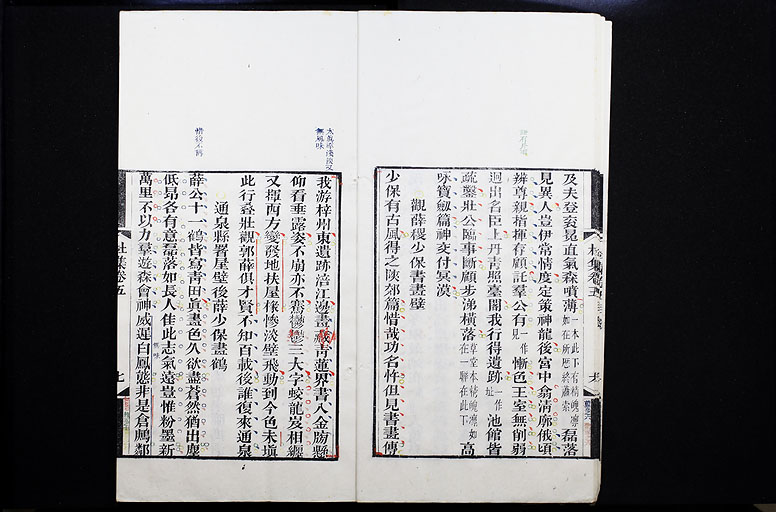 及夫登袞冕直氣森噴薄一本此下有精魄凜如在所歷終蕭索磊落
見異人豈伊常情度定策神龍後宮中翕清廓俄頃
辨尊親指揮存顧託羣公有一作見慚色王室無削弱
迥出名臣上丹青照臺閣我行得遺跡一作址池館皆
疏鑿壯公臨事斷顧步涕橫落草堂本精魄凜如在一聯在此下高
咏寶劍篇神交付冥漠
觀薛稷少保書畫壁
少保有古風得之陝郊篇惜哉功名忤但見書畫傳
杜集卷五
我游梓州東遺跡涪江邊畫藏青蓮界書入金牓縣
仰看垂露姿不崩亦不騫鬱鬱三大字蛟龍岌相纏
又揮西方變發地扶屋椽慘淡壁飛動到今色未塡
此行疊壯觀郭薛俱才賢不知百載後誰復來通泉
通泉縣署屋壁後薛少保畫鶴
薛公十一鶴皆寫青田眞畫色久欲盡蒼然猶出塵
低昂各有意磊落如長人佳此志氣遠豈惟粉墨新
萬里不以力羣遊森會神威遲白鳳態非是倉鶊鄰
杜集卷五